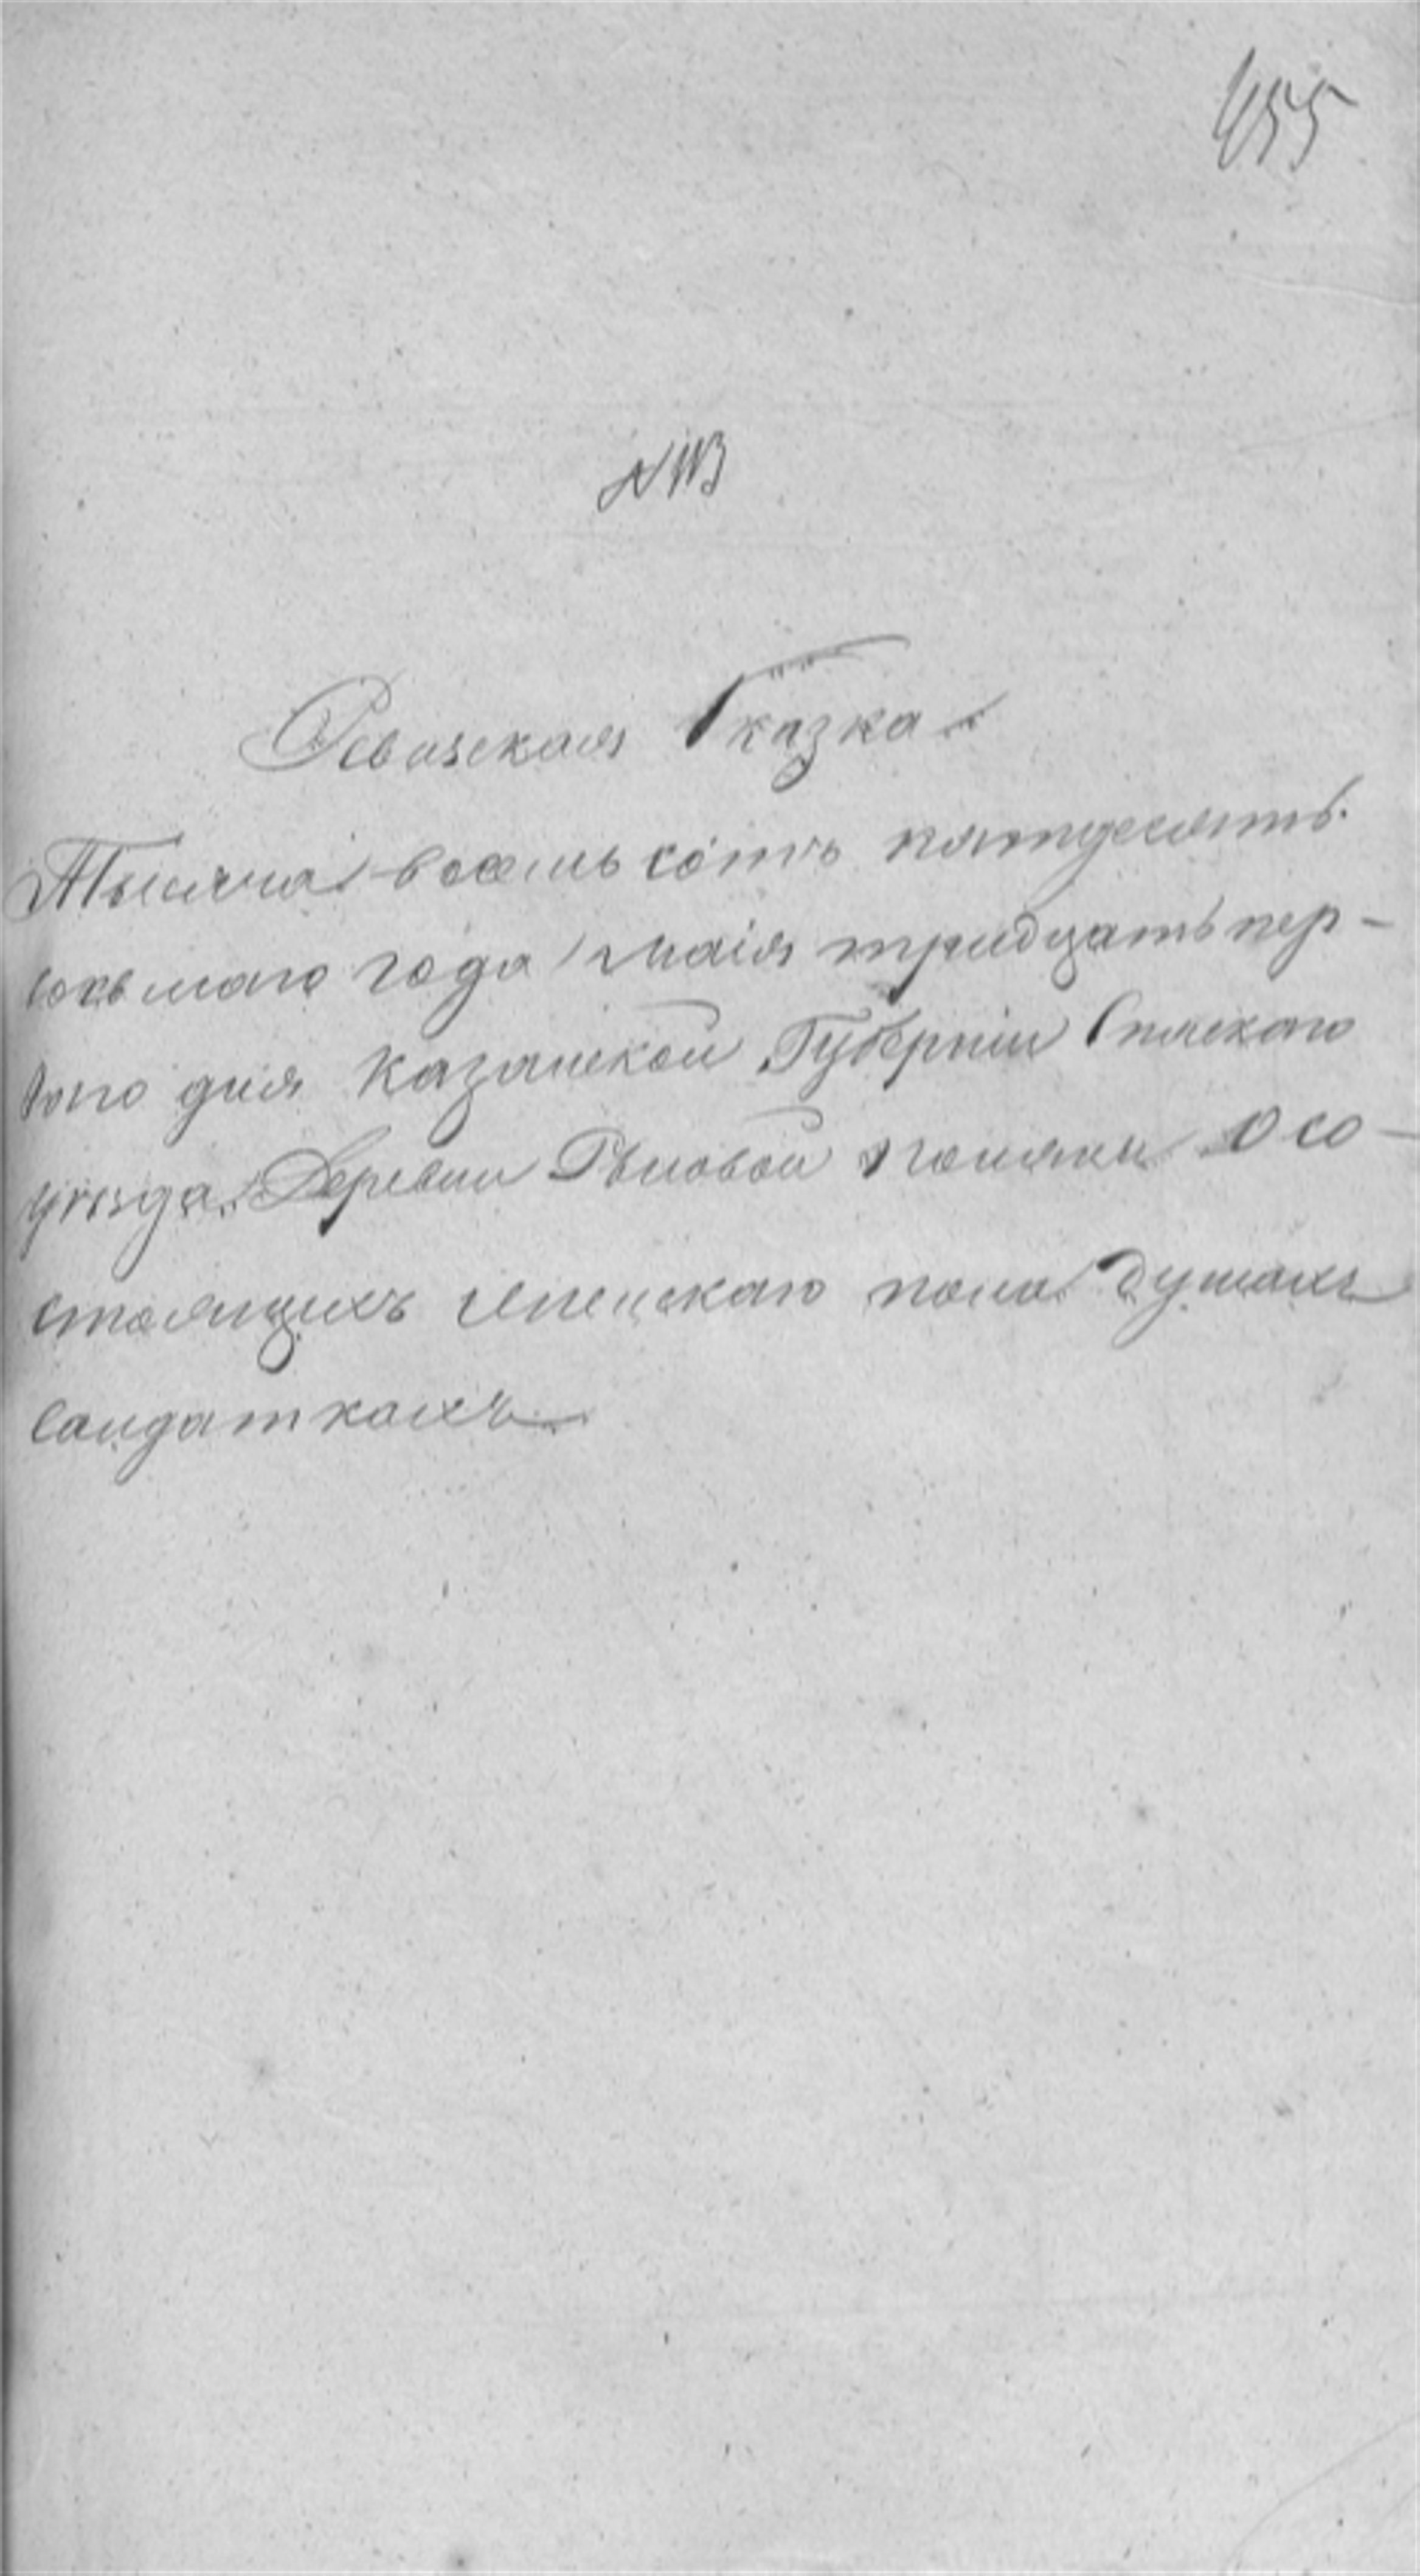 455
№ 113
Ревизская Сказка
Тысяча восемь сотъ пятдесятъ
восьмаго года маія тридцать пер-
ваго дня Казанской Губерніи Спаскаго
уѣзда Деревни Поляны О со-
стоящихъ женскаго пола душахъ
Салдаткахъ